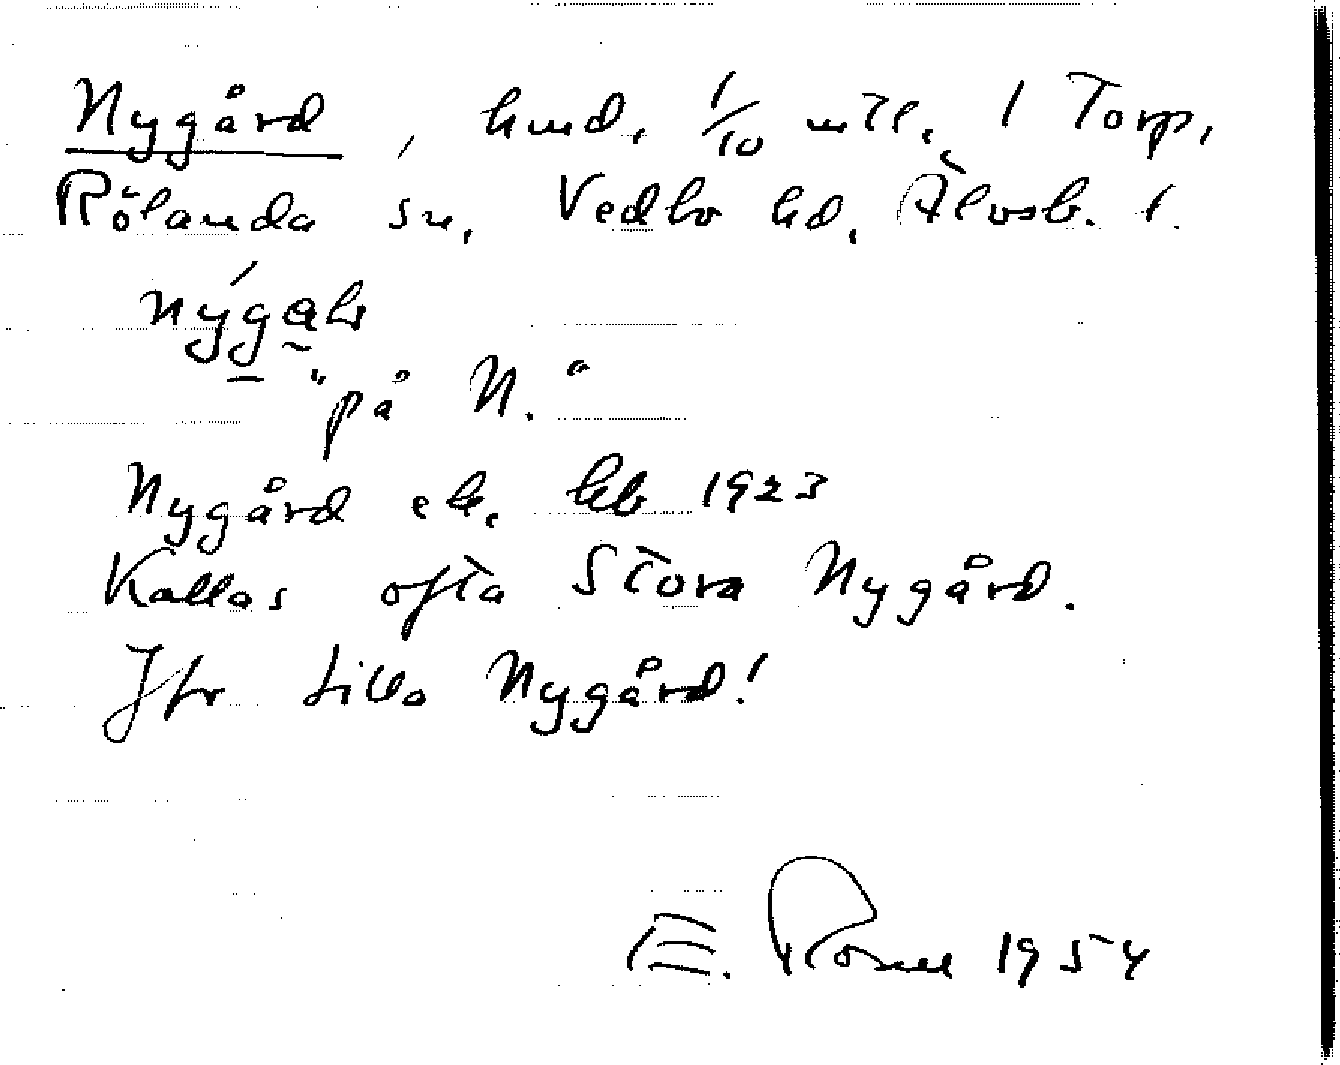 Nygård, hmd. 1/10 mtl. 1 Torp,
Rölanda sn. Vedbo hd. Älvsb. l.
"på N."
Nygård ek. kb 1923
Kallas ofta Stora Nygård.
Jfr Lilla Nygård!
E. Rosell 1954